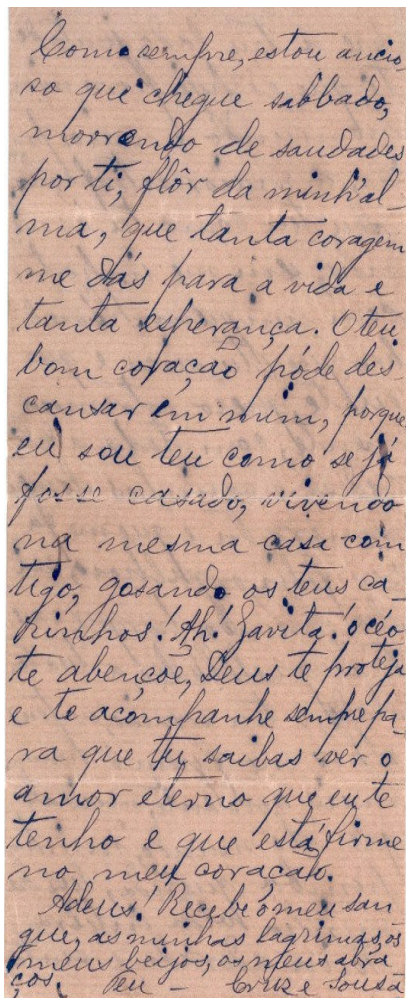 Como sempre, estou ancio-
so que chegue sabbado,
morrendo de saudades
por ti, flôr da minh'al-
ma, que tanta coragem
me dás para a vida e
tanta esperança. O teu
bom coração póde des-
cansar em mim, porque
eu sou teu como se já
fosse casado, vivendo
na mesma casa com-
tigo, gosando os teus ca-
rinhos! Ah! Gavita! o céo
te abençoe, Deus te proteja
e te acompanhe sempre pa-
ra que tu saibas ver o
amor eterno que eu te
tenho e que está firme
no meu coração.
Adeus! Recebe o meu san-
gue, as minhas lagrimas, os
meus beijos, os meus abra-
ços. Teu — Cruz e Sousa